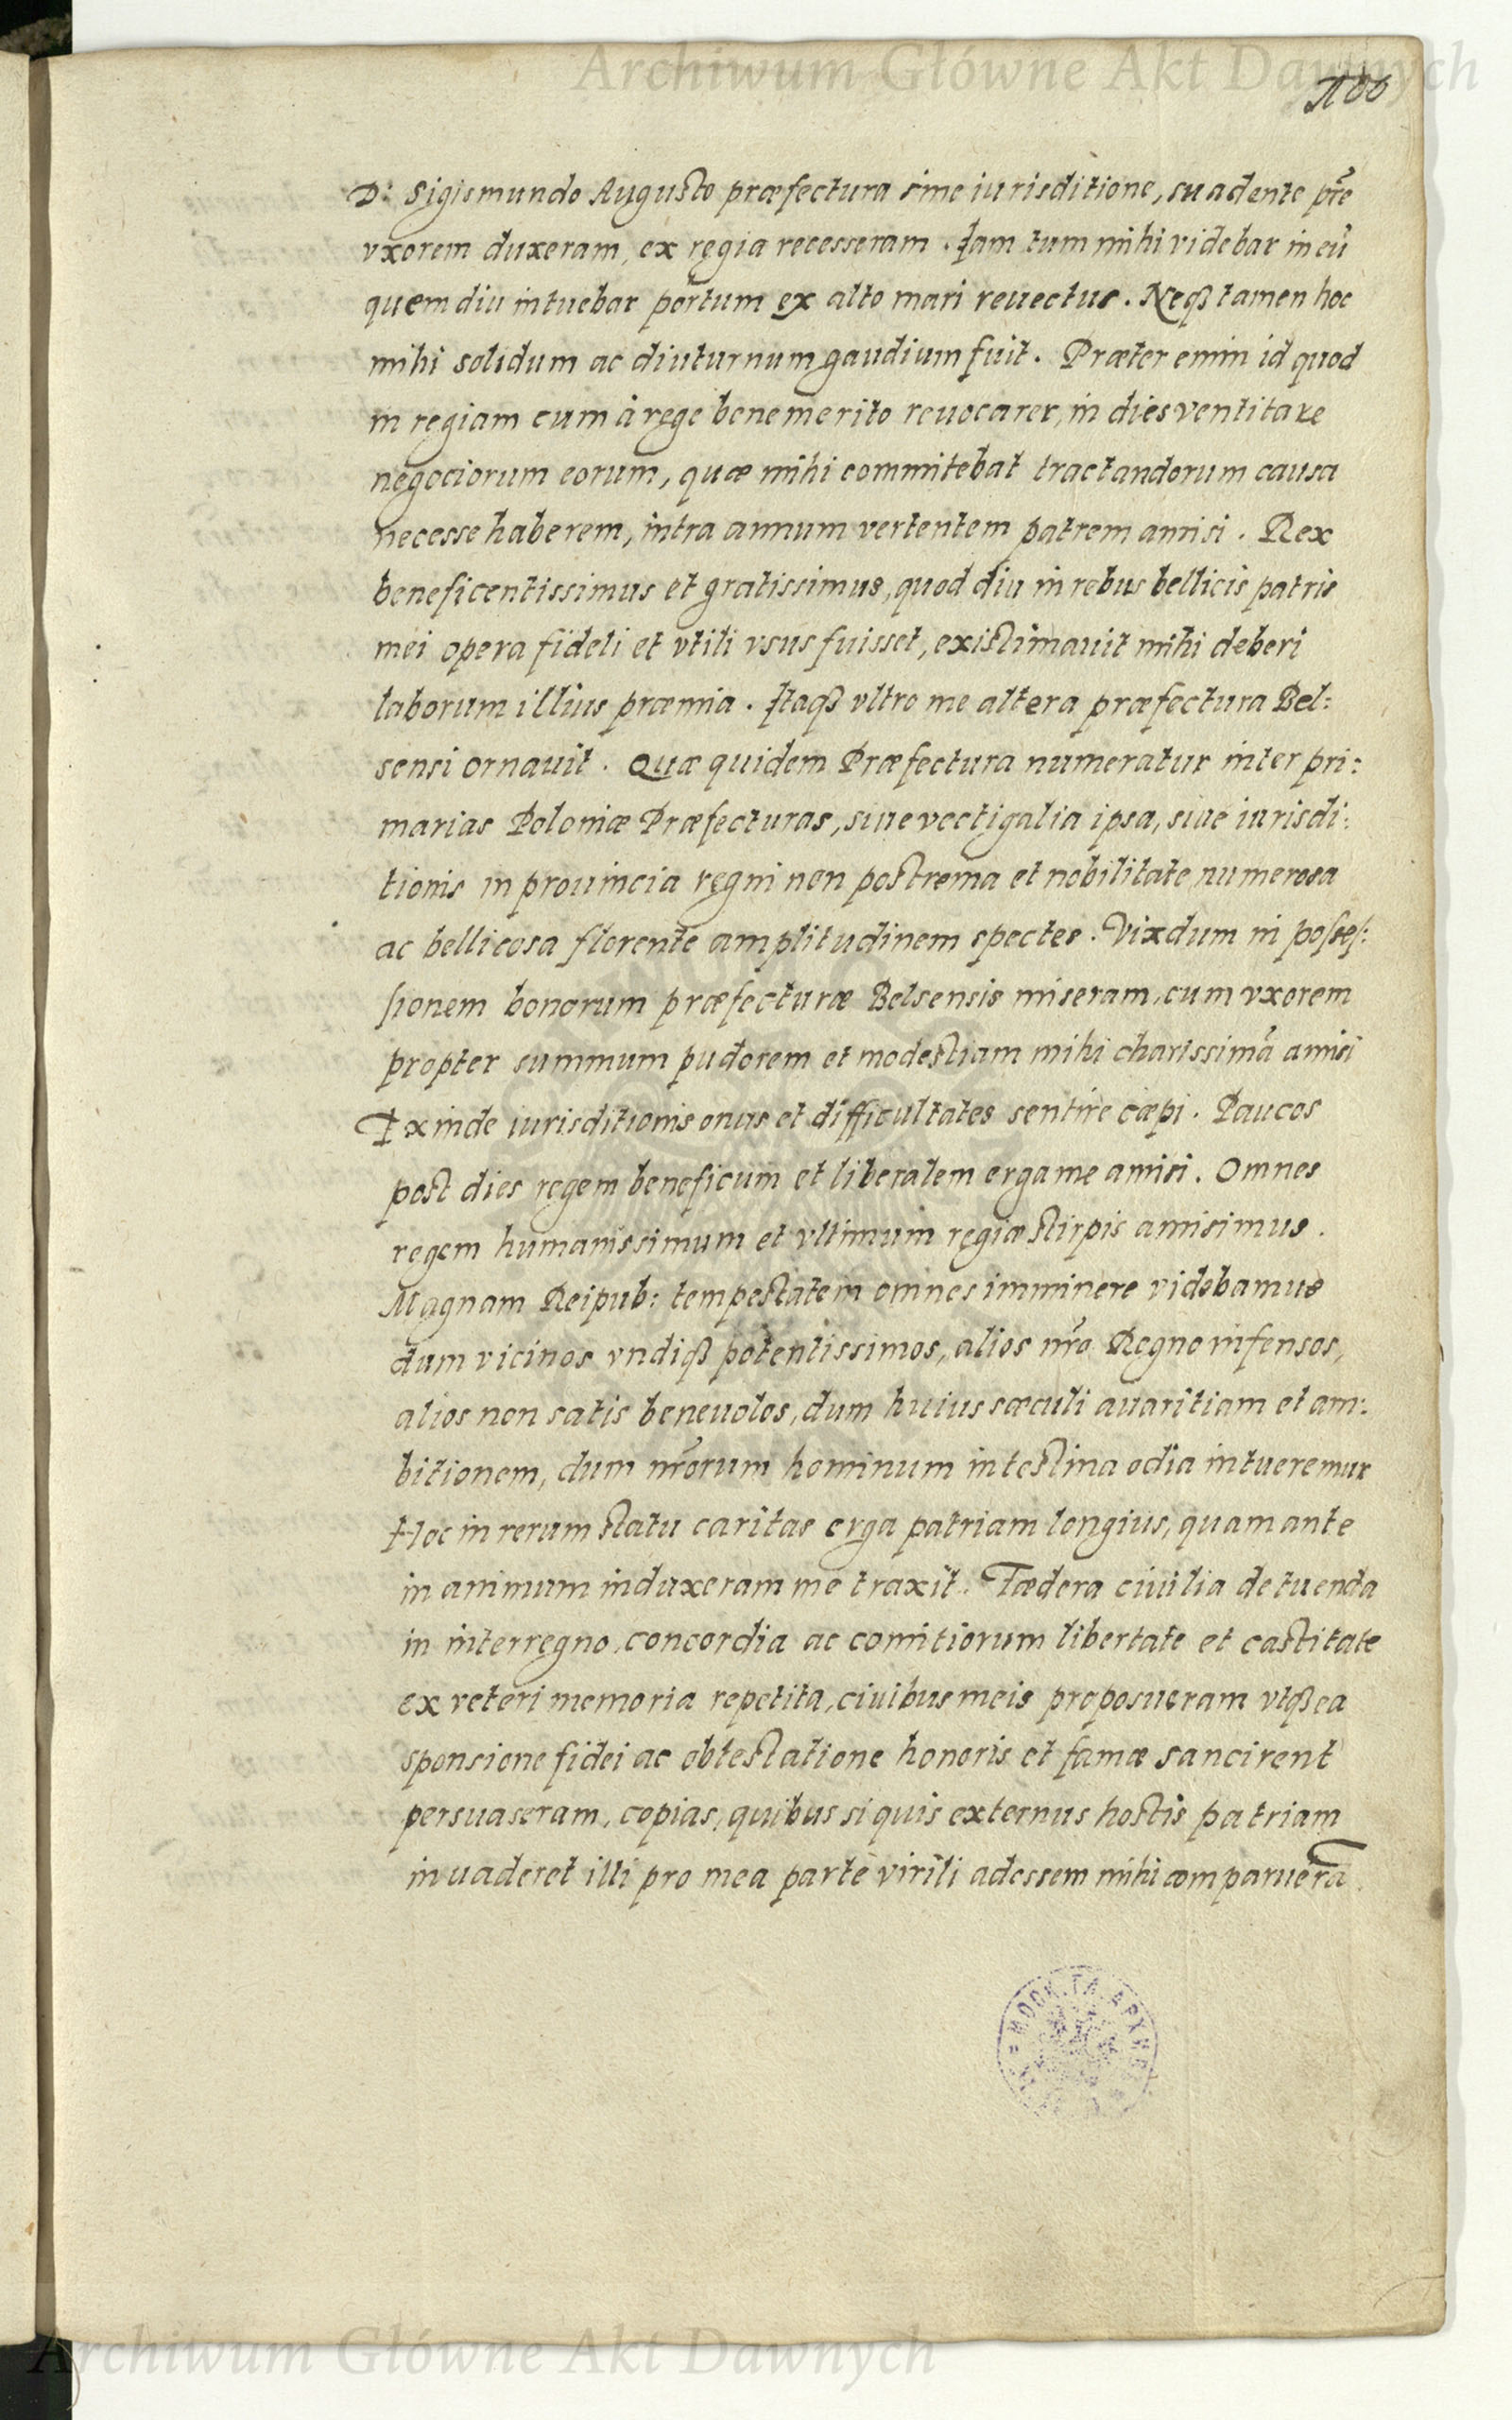 Archiwum Główne Akt Dawnych
D: Sigismundo Augusto præfectura sine iurisditione, suadente pr̃e
vxorem duxeram, ex regia recesseram. Iam tum mihi videbar in eũ
quem diu intuebar portum ex alto mari reuectus. Neqȝ tamen hoc
mihi solidum ac diuturnum gaudium fuit. Præter enim id quod
in regiam cum à rege bene merito reuocarer, in dies ventitare
negociorum eorum, quæ mihi commitebat tractandorum causa
necesse haberem, intra annum vertentem patrem amisi. Rex
beneficentissimus et gratissimus, quod diu in rebus bellicis patris
mei opera fideli et vtili vsus fuisset, existimauit mihi deberi
laborum illius præmia. Itaqȝ vltro me altera præfectura Bel:
sensi ornauit. Quæ quidem Præfectura numeratur inter pri:
marias Poloniæ Præfecturas, siue vectigalia ipsa, siue iurisdi:
tionis in prouincia regni non postrema et nobilitate numerosa
ac bellicosa florente amplitudinem spectes. Vixdum in posses:
sionem bonorum præfecturæ Belsensis miseram, cum vxorem
propter summum pudorem et modestiam mihi charissimã amisi
Exinde iurisditionis onus et difficultates sentire cæpi. Paucos
post dies regem beneficum et liberalem erga me amisi. Omnes
regem humanissimum et vltimum regiæ stirpis amisimus.
Magnam Reipub: tempestatem omnes imminere videbamus
dum vicinos vndiqȝ potentissimos, alios nr̃o Regno infensos,
alios non satis beneuolos, dum huius sæculi auaritiam et am:
bitionem, dum nr̃orum hominum intestina odia intueremur
Hoc in rerum statu caritas erga patriam longius, quam ante
in animum induxeram me traxit. Fædera ciuilia de tuenda
in interregno concordia ac comitiorum libertate et castitate
ex veteri memoria repetita, ciuibus meis proposueram vtqȝ ea
sponsione fidei ac obtestatione honoris et famæ sancirent
persuaseram, copias, quibus si quis externus hostis patriam
inuaderet illi pro mea parte virili adessem mihi comparuerã
Archiwum Główne Akt Dawnych